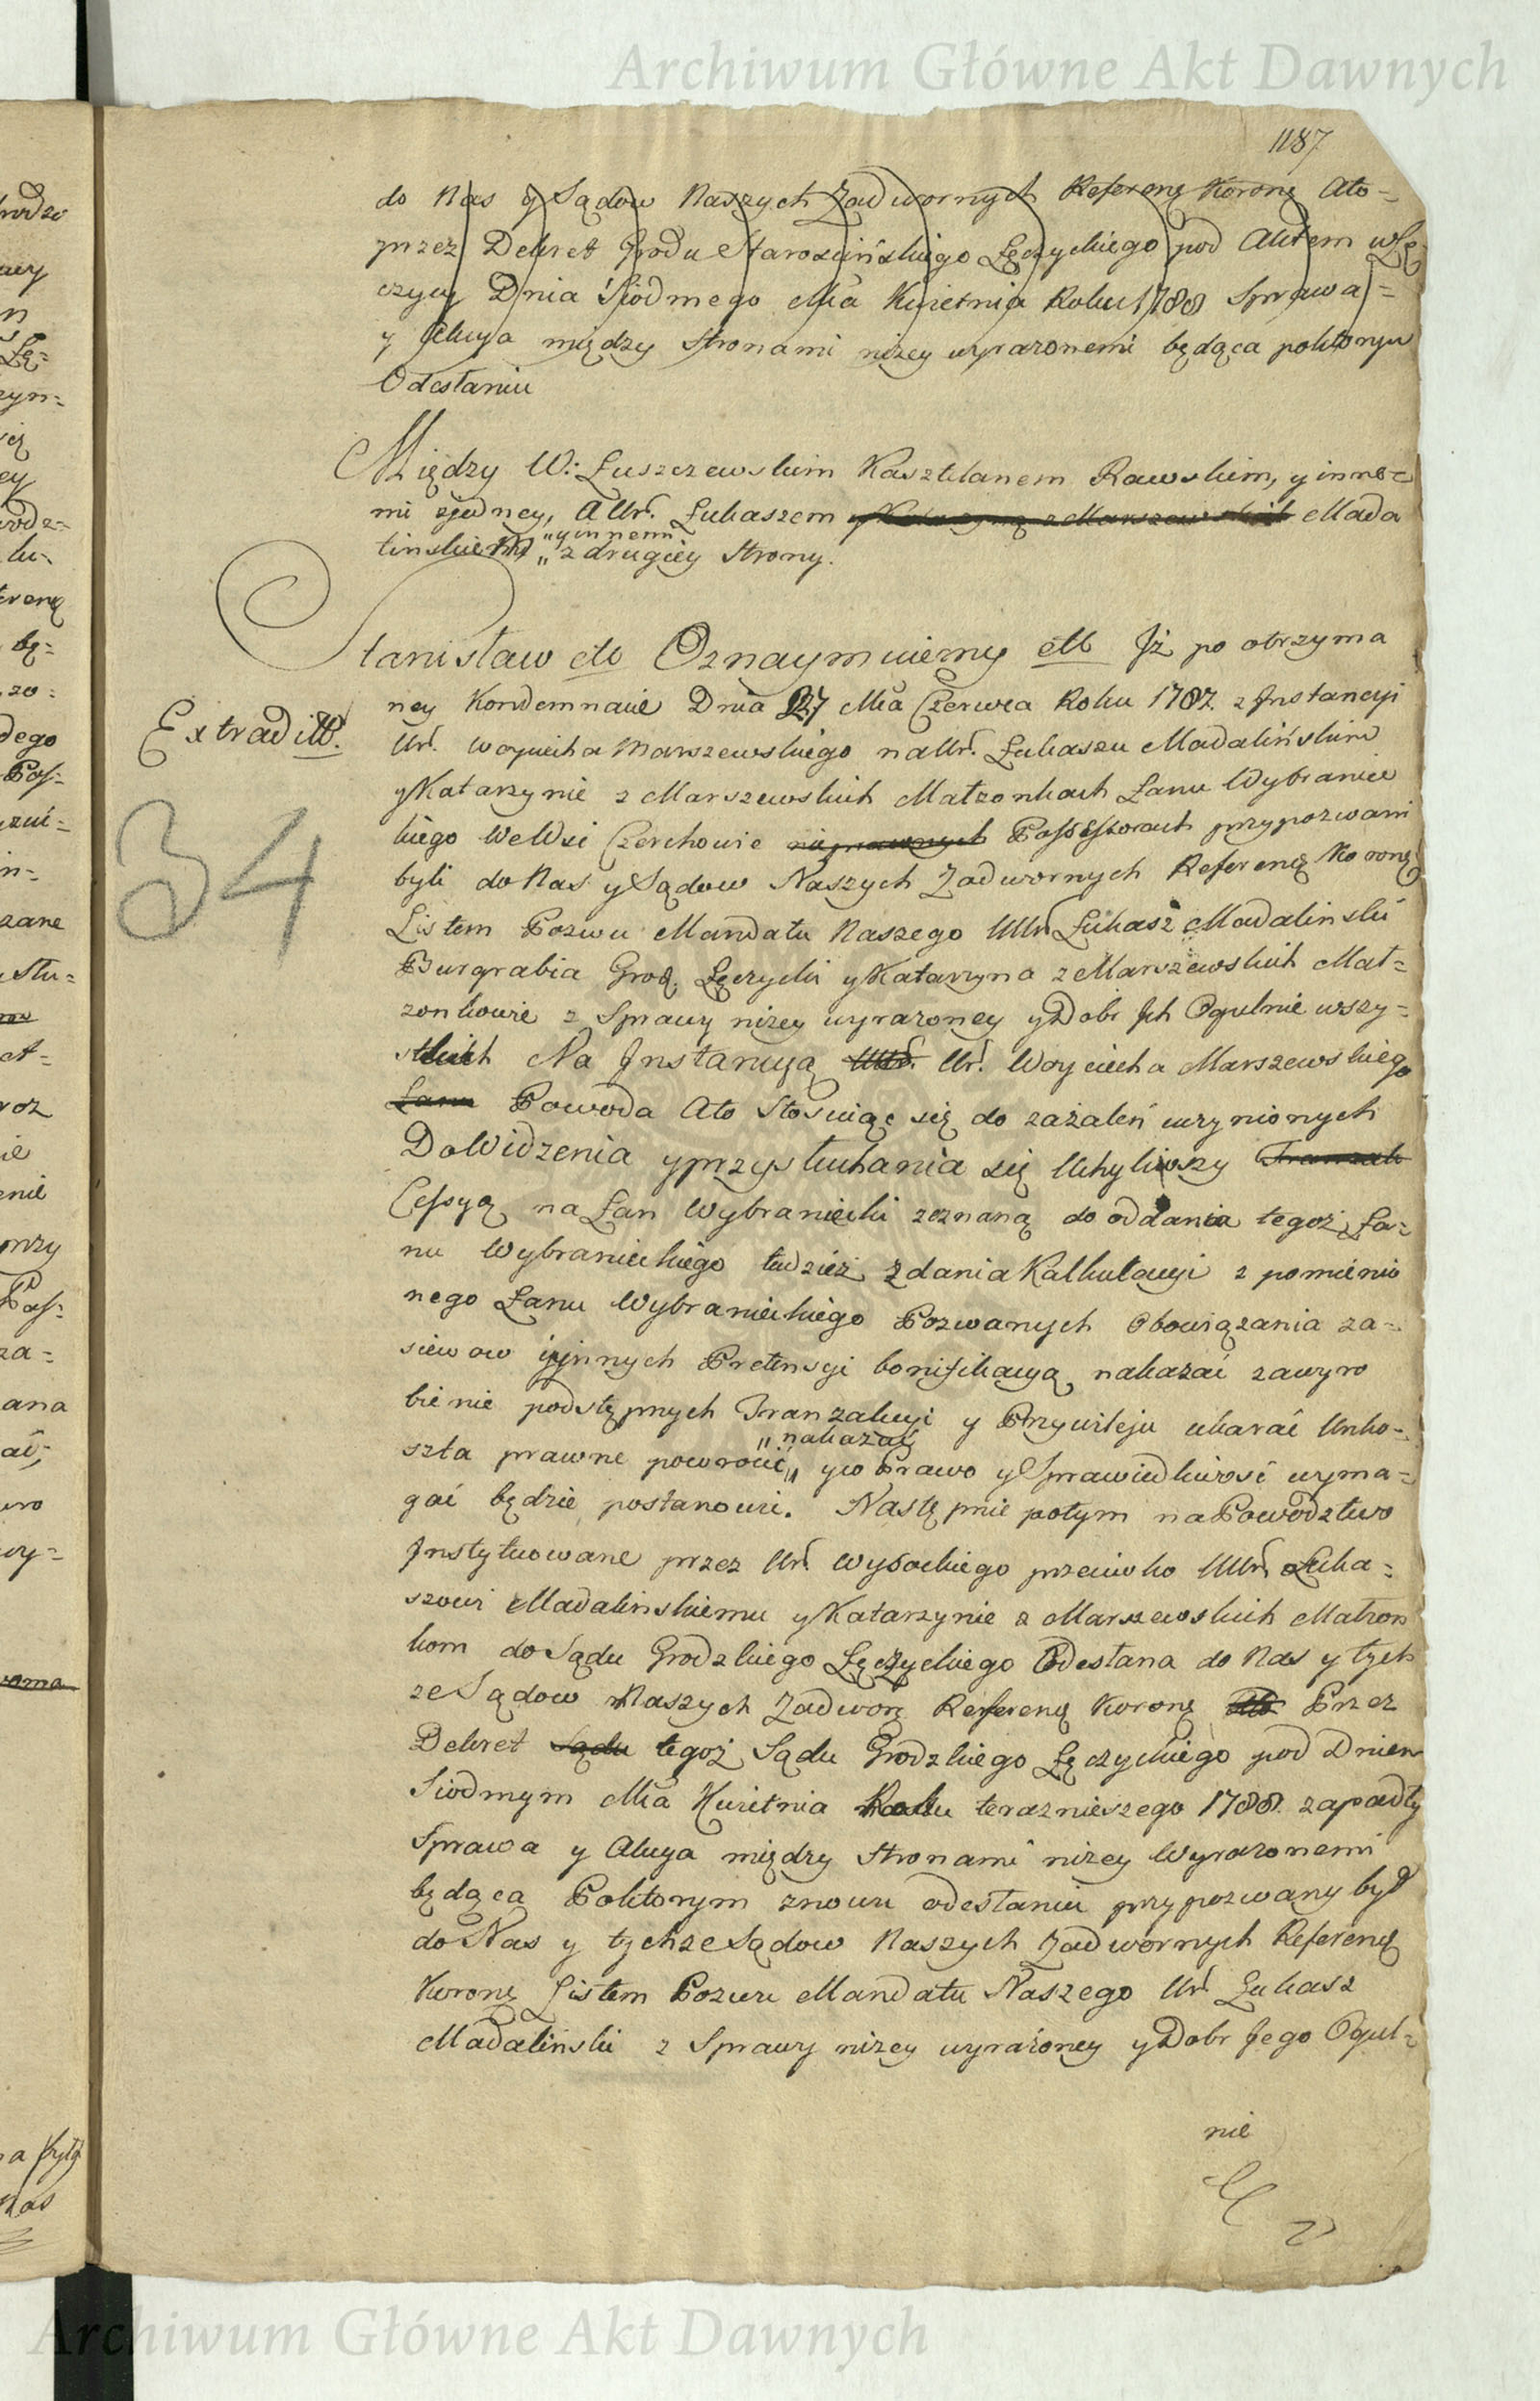 Archiwum Główne Akt Dawnych
1187
do Nas y Sądow Naszych Zadwornych Referenę Koronę Ato=
przez Dekret Grodu Starościńskiego Łęczyckiego pod Aktem w Łę
czycy Dnia Siodmego Mca Kwietnia Roku 1788 Sprawa=
y Akcya między stronami niżey wyrażonemi będąca poktorym
Odesłaniu
Między W: Łuszczewskim Kasztelanem Rawskim, y inne=
mi zjedney, A Ur. Łukaszem y Katarzyną z Marszewskich Mada
linskiemi „y innemi„ z drugiey Strony.
Stanisław etc Oznaymuiemy etc Jż po otrzyma
ney Kondemnacie Dnia 27 Mca Czerwca Roku 1787. z Jnstancyi
Ur. Woyciecha Marszewskiego na Ur. Łukaszu Madalińskim
Extraditt.
y Katarzynie z Marszewskich Małzonkach Łanu Wybraniec
34
kiego We Wsi Czerchowie Possessorach przypozwani
byli do Nas y Sądow Naszych Zadwornych Referenę Koronę
Listem Pozwu Mandatu Naszego UUr Łukasz Madalinski
Burgrabia Grod. Łęczycki y Katarzyna z Marszewskich Mał=
zonkowie z Sprawy niżey wyrażoney y Dobr Jch Ogulnie wszy=
stkich Na Jnstancyą UUr. Ur. Woyciecha Marszewskiego
Łanu Powoda Ato Stosuiąc się do zażaleń uczynionych
Do Widzenia y przysłuchania się Uchyliwszy Tranzak
Cessyą na Łan Wybraniecki zeznaną do oddania tegoż Ła=
nu Wybranieckiego tudzież zdania Kalkulacyi z pomienio
nego Łanu Wybranieckiego Pozwanych Obowiązania za=
siewow y innych Pretensyi bonifikacyą nakazać zawyro
bienie podstępnych Tranzakcyi y Przywileju ukarać Unko=
szta prawne powrocić „nakazać„ y co Prawo y Sprawiedliwość wyma=
gać będzie postanowi. Następnie potym na Powodztwo
Jnstytuowane przez Ur. Wysockiego przeciwko UUr. Łuka=
szowi Madalinskiemu y Katarzynie z Marszewskich Małzon
kom do Sądu Grodzkiego Łęczyckiego Odesłana do Nas y tych
ze Sądow Naszych Zadworę Referenę Koronę Przez
Dekret Sądu tegoż Sądu Grodzkiego Łęczyckiego pod Dniem
Siodmym Mca Kwietnia Roku terazniejszego 1788. zapadły
Sprawa y Akcya między Stronami niżey Wyrażonemi
będąca Poktorym znowu odesłaniu przypozwany był
do Nas y tychze Sądow Naszych Zadwornych Referenę
Koronę Listem Pozwu Mandatu Naszego Ur. Łukasz
Madaliński z Sprawy niżey wyrażoney y Dobr Jego Ogul=
nie
Archiwum Główne Akt Dawnych